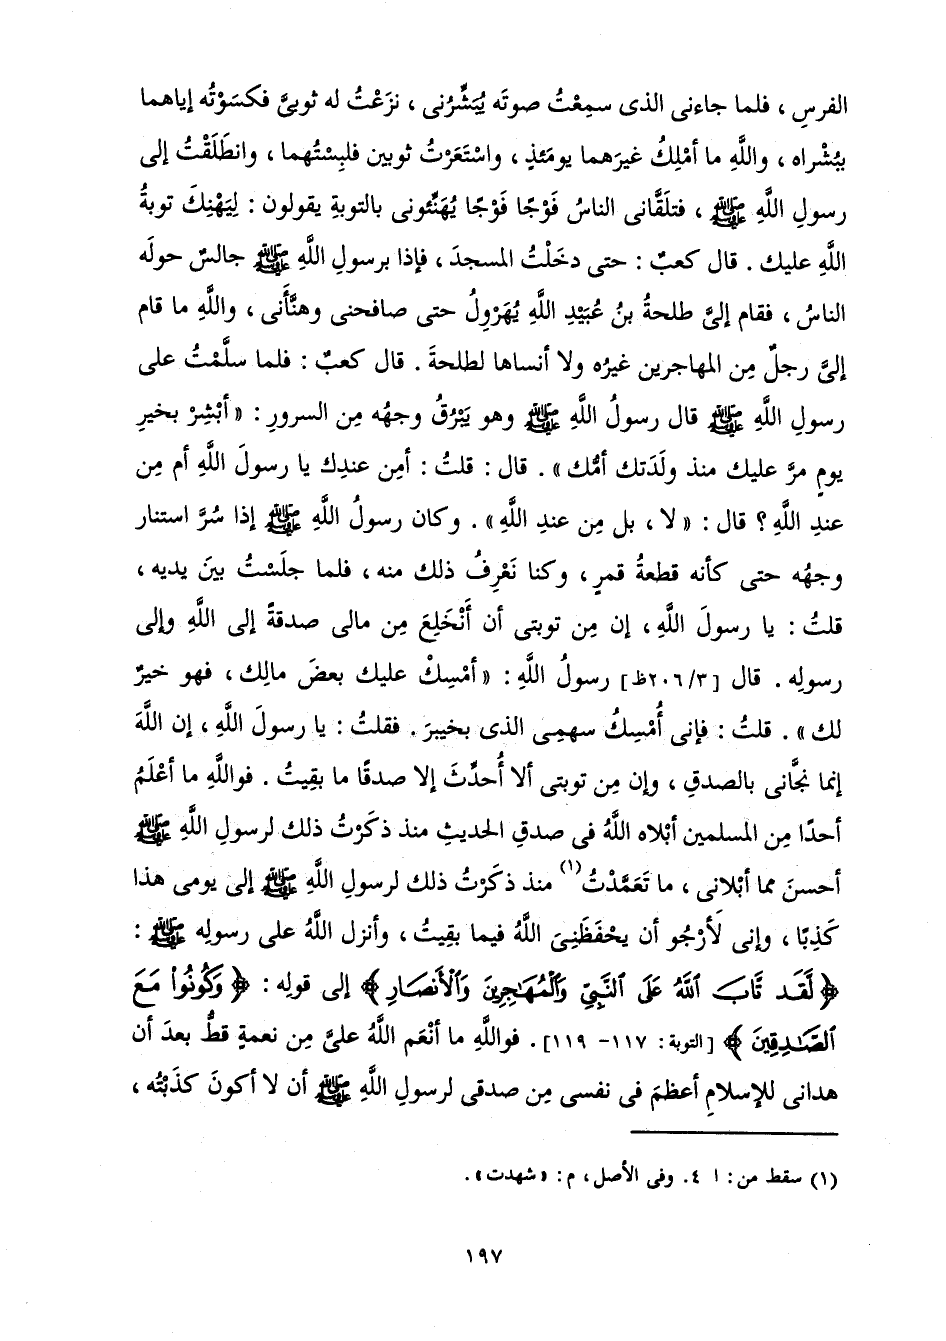 الفرسِ ، فلما جاءنى الذى سمِعْتُ صوتَه يُبَشِّرُنى ، نزَعْتُ له ثوبىَّ فكسَوْتُه إياهما
ببُشْراه ، واللَّهِ ما أمْلِكُ غيرَهما يومَئذٍ ، واسْتَعَرْتُ ثوبين فلبِسْتُهما ، وانطَلَقْتُ إلى
رسولِ اللَّهِ ﷺ ، فتلَقَّانى الناسُ فَوْجًا فَوْجًا يُهَنِّئونى بالتوبةِ يقولون : لِيَهْنِكَ توبةُ
اللَّهِ عليك . قال كعبٌ : حتى دخَلْتُ المسجدَ ، فإذا برسولِ اللَّهِ ﷺ جالسٌ حولَه
الناسُ ، فقام إلىَّ طلحةُ بنُ عُبَيْدِ اللَّهِ يُهَرْوِلُ حتى صافحنى وهنَّأَنى ، واللَّهِ ما قام
إلىَّ رجلٌ مِن المهاجرين غيرُه ولا أنساها لطلحةَ . قال كعبٌ : فلما سلَّمْتُ على
رسولِ اللَّهِ ﷺ قال رسولُ اللَّهِ ﷺ وهو يَبْرُقُ وجهُه مِن السرورِ : « أبْشِرْ بخيرِ
يومٍ مرَّ عليك منذ ولَدَتك أمُّك » . قال : قلتُ : أمِن عندِك يا رسولَ اللَّهِ أم مِن
عندِ اللَّهِ ؟ قال : « لا ، بل مِن عندِ اللَّهِ » . وكان رسولُ اللَّهِ ﷺ إذا سُرَّ استنار
وجهُه حتى كأنه قطعةُ قمرٍ ، وكنا نَعْرِفُ ذلك منه ، فلما جلَسْتُ بينَ يديه ،
قلتُ : يا رسولَ اللَّهِ ، إن مِن توبتى أن أَنْخَلِعَ مِن مالى صدقةً إلى اللَّهِ وإلى
رسولِه . قال [٢٠٦/٣ظ] رسولُ اللَّهِ : « أمْسِكْ عليك بعضَ مالِك ، فهو خيرٌ
لك » . قلتُ : فإنى أُمْسِكُ سهمِى الذى بخيبرَ . فقلتُ : يا رسولَ اللَّهِ ، إن اللَّهَ
إنما نجَّانى بالصدقِ ، وإن مِن توبتى ألا أُحدِّثَ إلا صدقًا ما بقِيتُ . فواللَّهِ ما أعْلَمُ
أحدًا مِن المسلمين أبْلاه اللَّهُ فى صدقِ الحديثِ منذ ذكَرْتُ ذلك لرسولِ اللَّهِ ﷺ
أحسنَ مما أبْلانى ، ما تَعَمَّدْتُ(١) منذ ذكَرْتُ ذلك لرسولِ اللَّهِ ﷺ إلى يومى هذا
كَذِبًا ، وإنى لَأرْجُو أن يحْفَظَنِىَ اللَّهُ فيما بقِيتُ ، وأنزل اللَّهُ على رسولِه ﷺ :
﴿ لَّقَد تَّابَ ٱللَّهُ عَلَى ٱلنَّبِيِّ وَٱلْمُهَٰجِرِينَ وَٱلْأَنصَارِ ﴾ إلى قولِه : ﴿ وَكُونُوا۟ مَعَ
ٱلصَّٰدِقِينَ ﴾ [التوبة: ١١٧- ١١٩] . فواللَّهِ ما أنْعَم اللَّهُ علىَّ مِن نعمةٍ قطُّ بعدَ أن
هدانى للإسلامِ أعظمَ فى نفسى مِن صدقى لرسولِ اللَّهِ ﷺ أن لا أكونَ كذَبْتُه ،
(١) سقط من: ا ٤. وفى الأصل، م: « شهدت ».
١٩٧